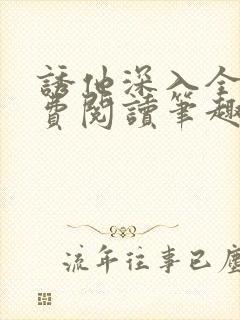 誘他深入全
費閱讀筆趣
流年往事已塵